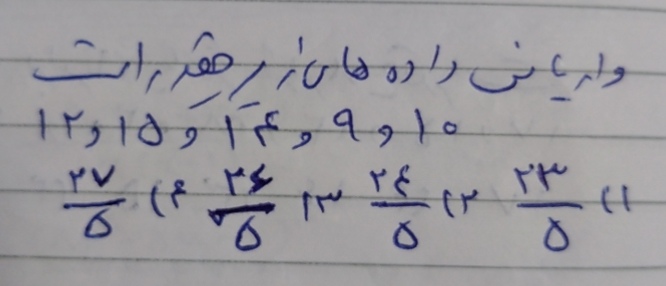 واریانس داده های زیر چقدر است
۱۰ و ۹ و ۱۴ و ۱۵ و ۱۲
۱) ۲۳/۵ ۲) ۲۴/۵ ۳) ۲۶/۵ ۴) ۲۷/۵